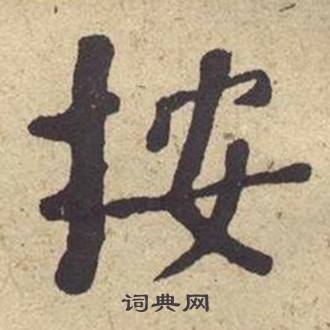 按
词典网